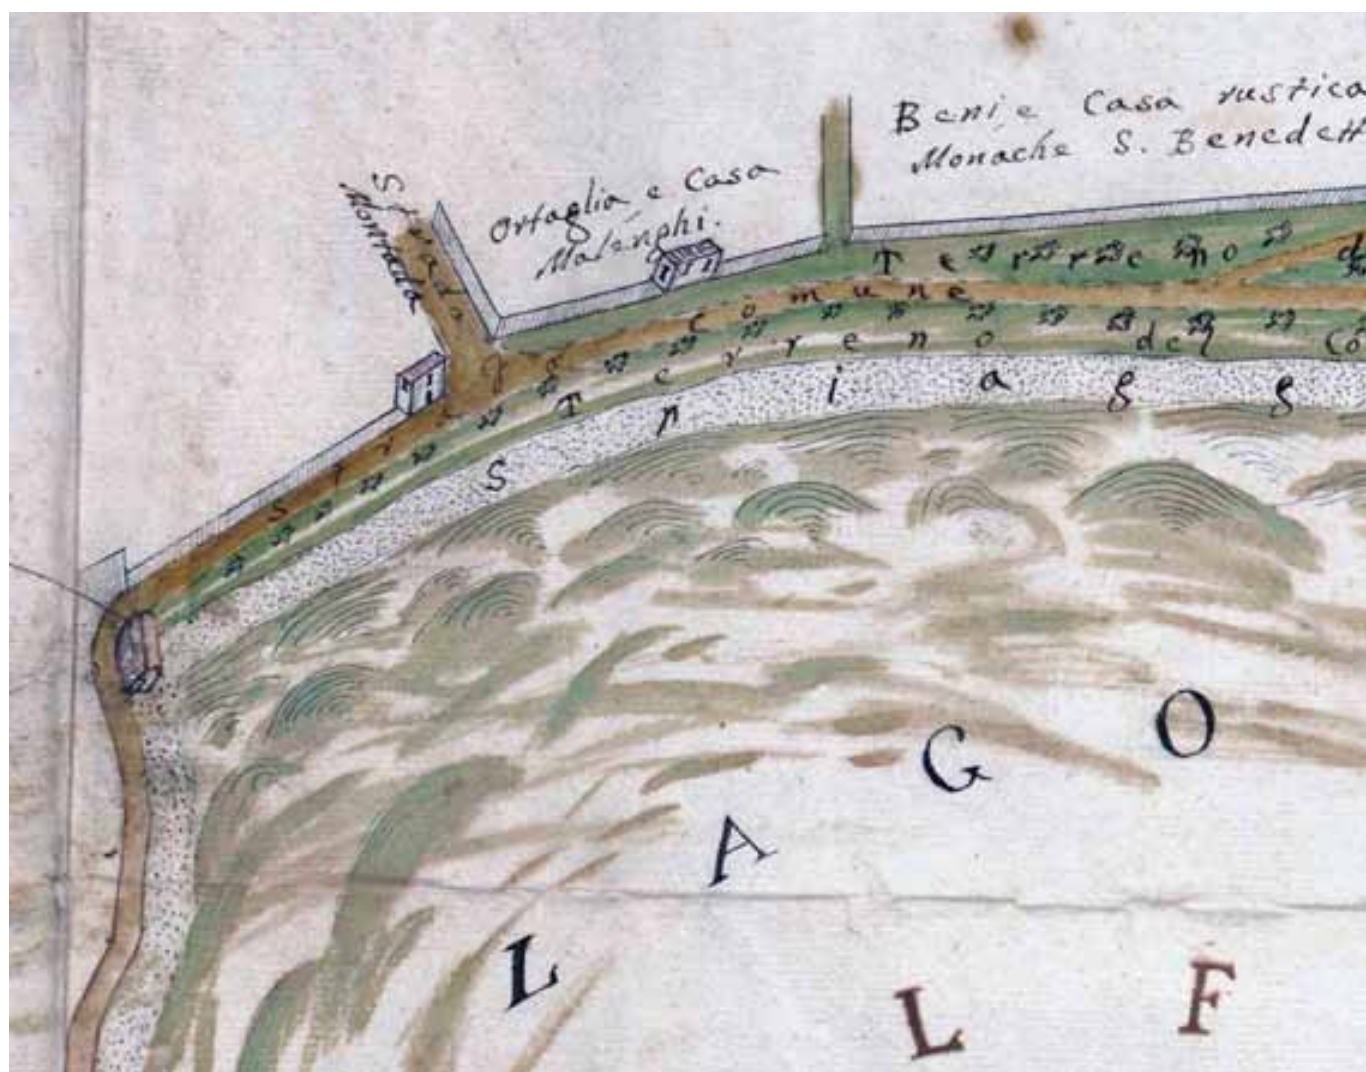 Beni, e Casa rustica
Monache S. Benedett
Ortaglia e Casa
Malenghi.
Strada
Terreno d
Strada cõmune
Terreno del Cõ
Spiagg
LAGO
L F